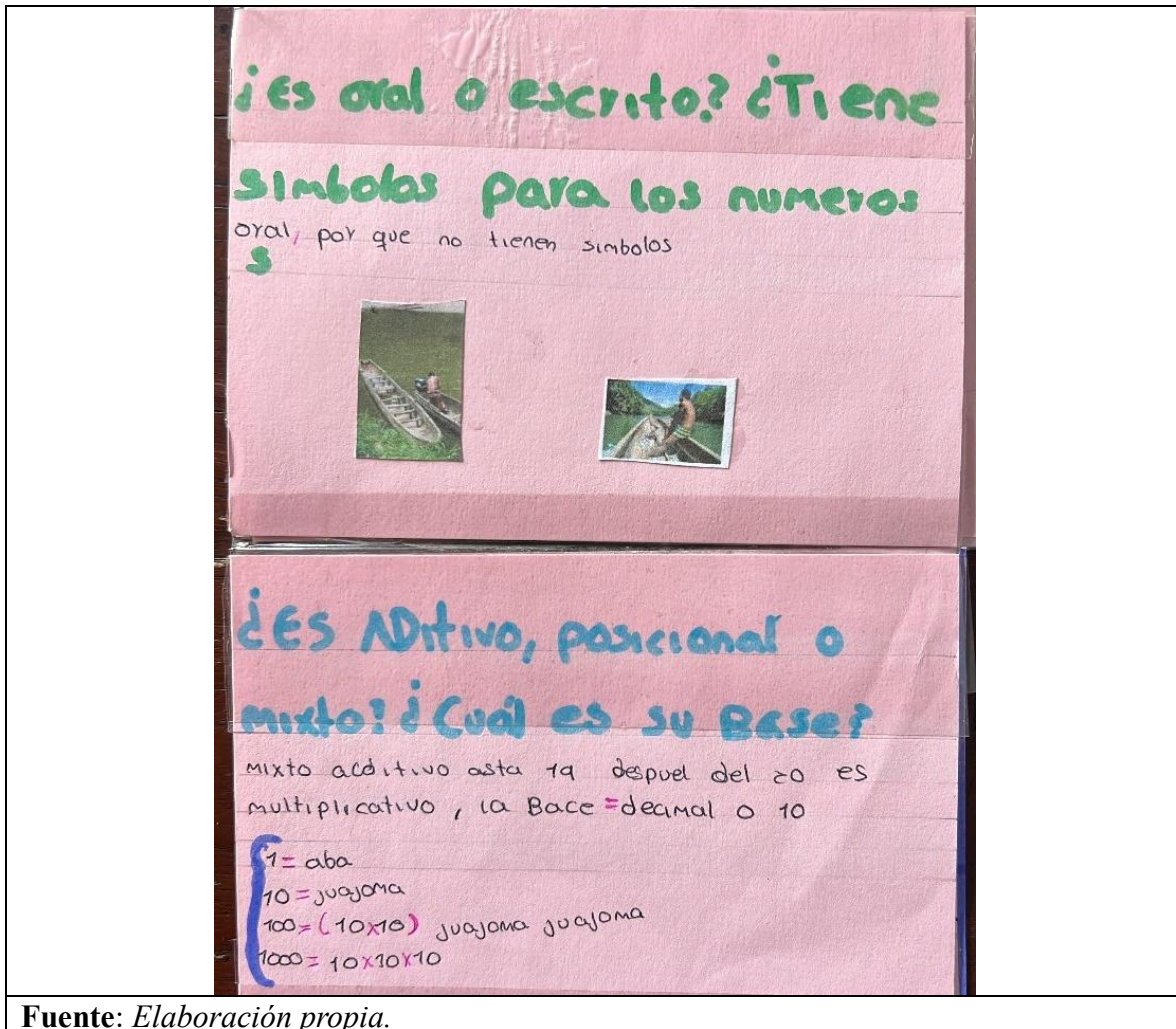 ¿Es oral o escrito? ¿Tiene
simbolos para los numeros
oral, por que no tienen simbolos
s
¿Es ADitivo, posicional o
mixto? ¿Cuál es su Base?
mixto acditivo asta 19 despuel del 20 es
multiplicativo, la Bace = decimal o 10
1 = aba
10 = juajoma
100 = (10x10) juajoma juajoma
1000 = 10x10x10
Fuente: Elaboración propia.